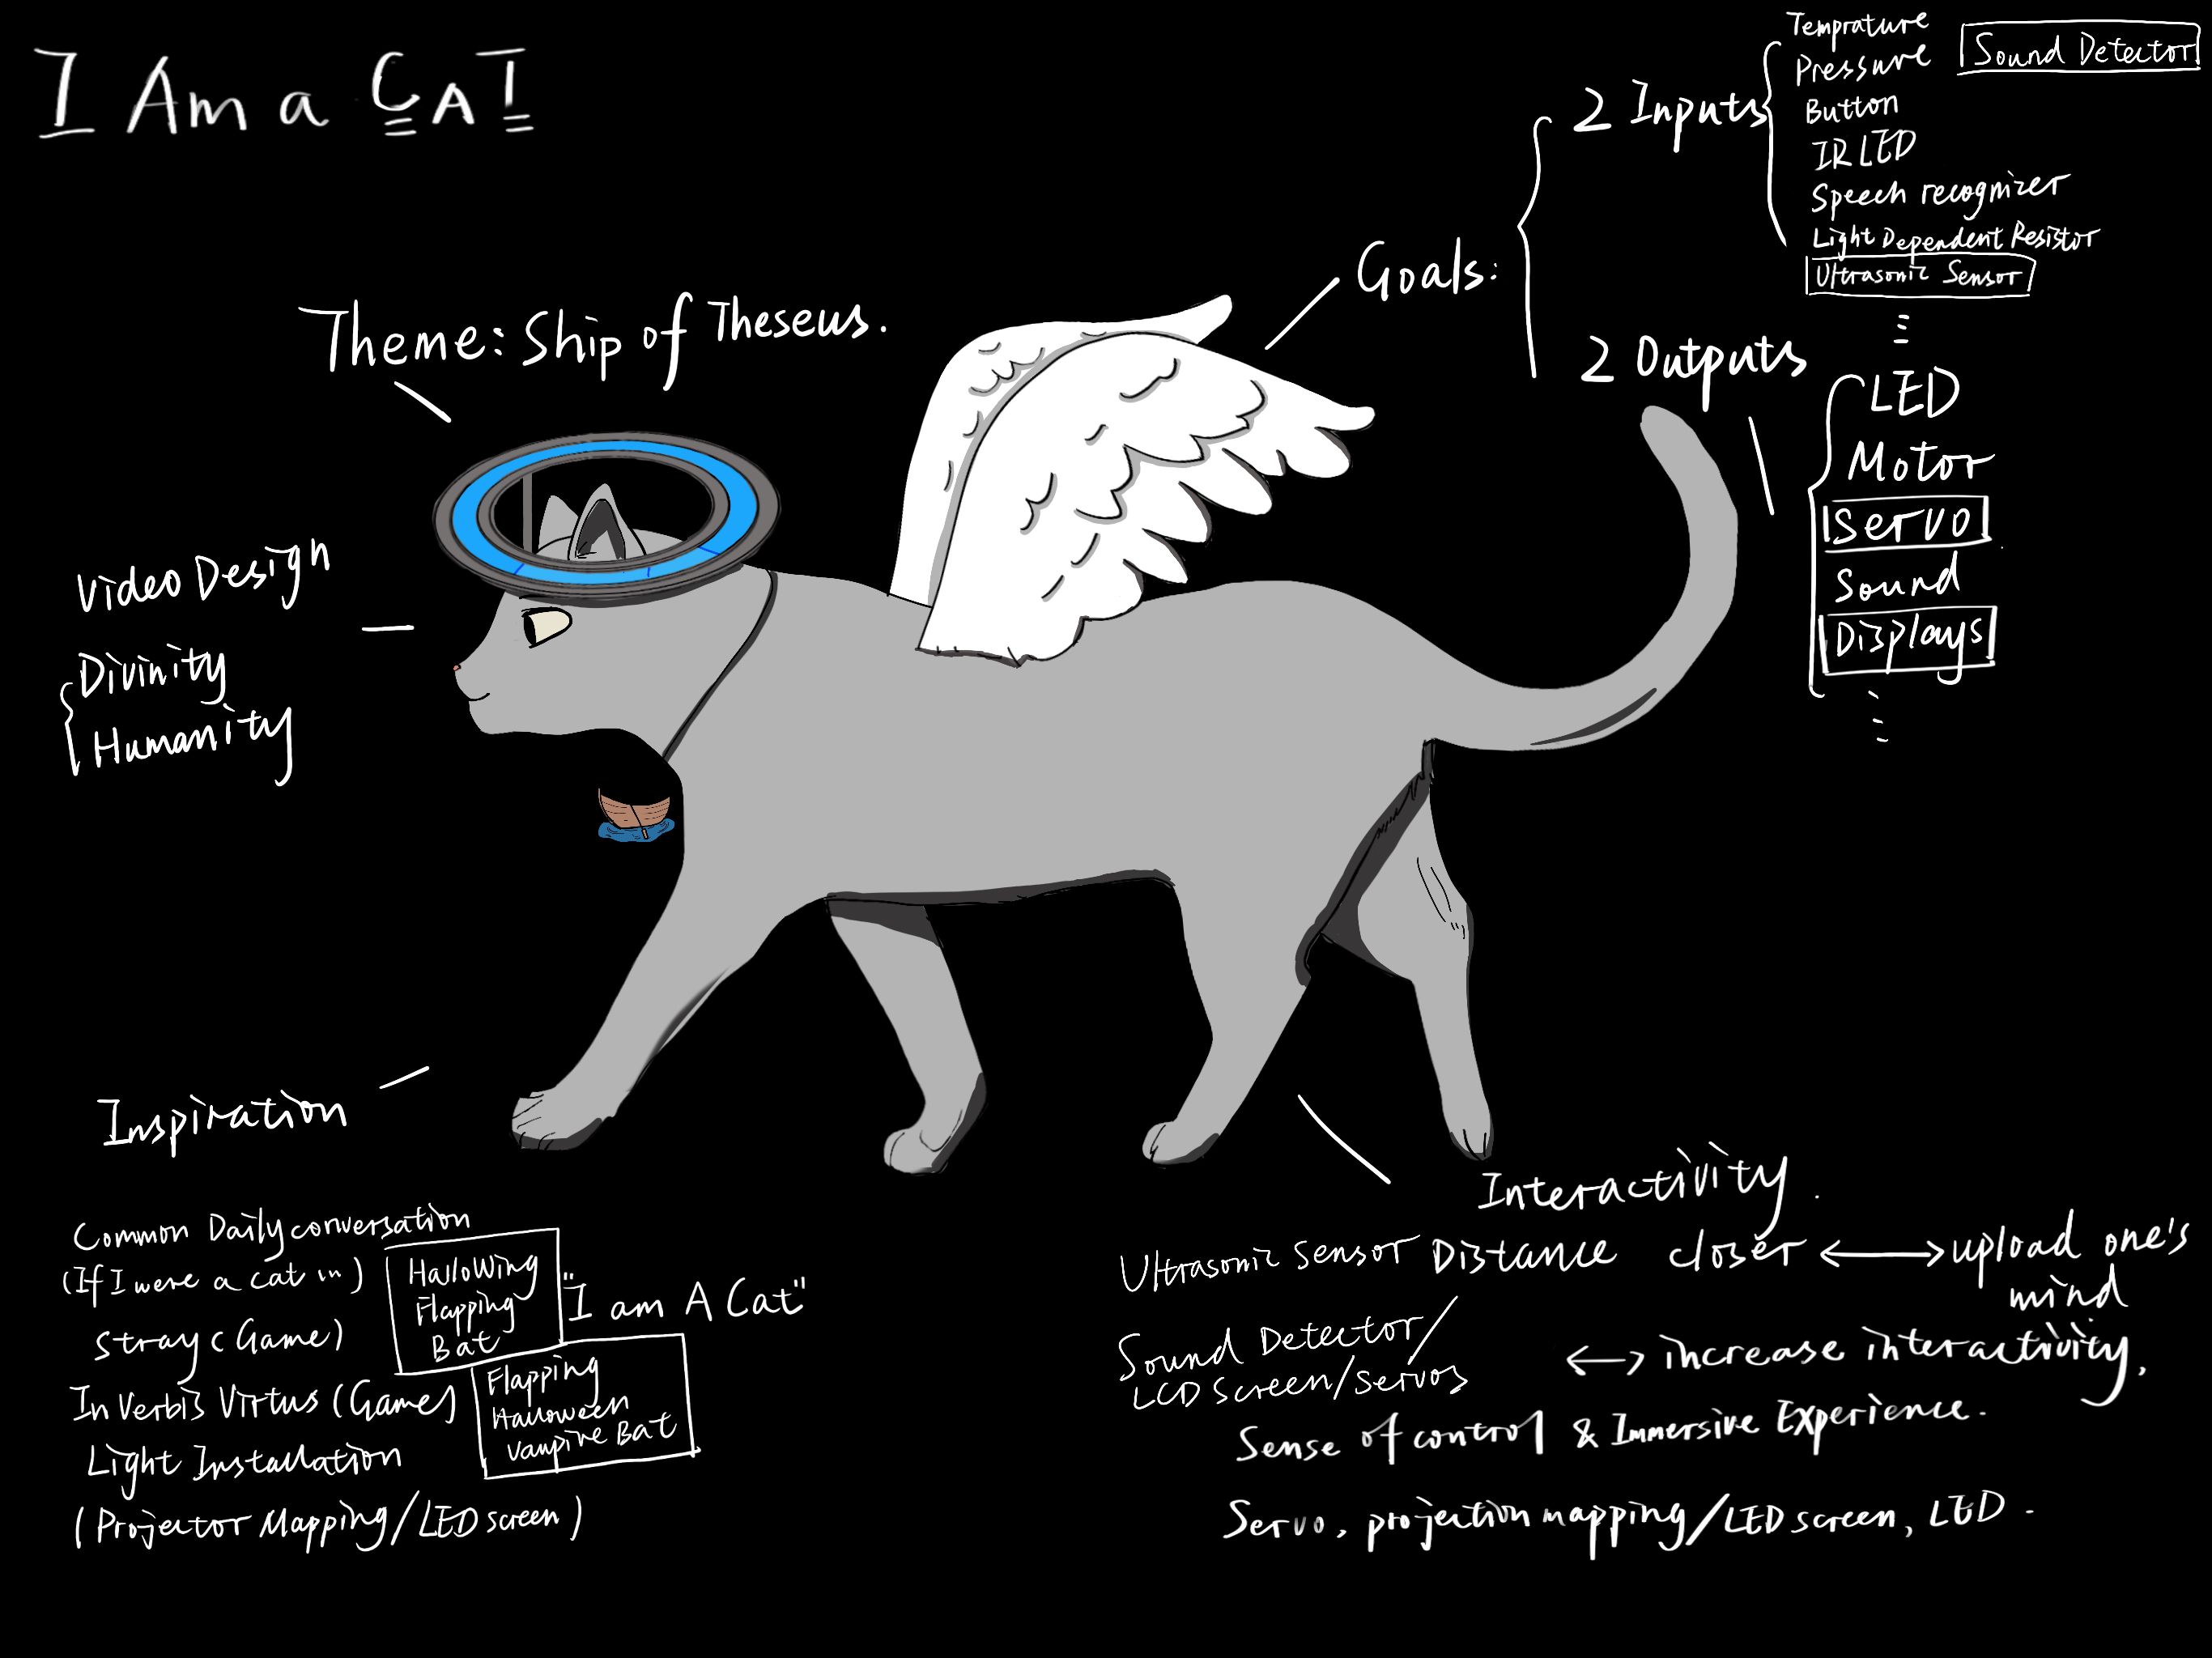 I Am a CAT
Theme: Ship of Theseus.
Video Design
Divinity
Humanity
Goals:
2 Inputs
Temprature
Pressure
Sound Detector
Button
IR LED
Speech recognizer
Light Dependent Resistor
Ultrasonic Sensor
2 Outputs
LED
Motor
Servo
Sound
Displays
Inspiration
Common Daily conversation
(If I were a cat in)
Stray (Game)
In Verbis Virtus (Game)
Light Installation
(Projector Mapping/LED screen)
HalloWing
Flapping
Bat
"I am A Cat"
Flapping
Halloween
Vampire Bat
Interactivity.
Ultrasonic Sensor Distance closer ⟷ upload one's
mind
Sound Detector/
LCD Screen/Servos
⟷ increase interactivity,
Sense of control & Immersive Experience.
Servo, projection mapping/LED screen, LED.